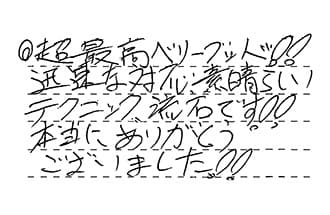 ◎超最高ベリーグッド!!
迅速な対応素晴らしい
テクニック、流石です!!
本当にありがとう
ございました!!